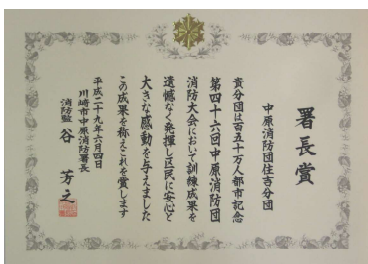 署長賞
中原消防団住吉分団
貴分団は百五十万人都市記念
第四十六回中原消防団
消防大会において訓練成果を
遺憾なく発揮し区民に安心と
大きな感動を与えました
この成果を称えこれを賞します
平成二十九年六月四日
川崎市中原消防署長
消防監 谷 芳之